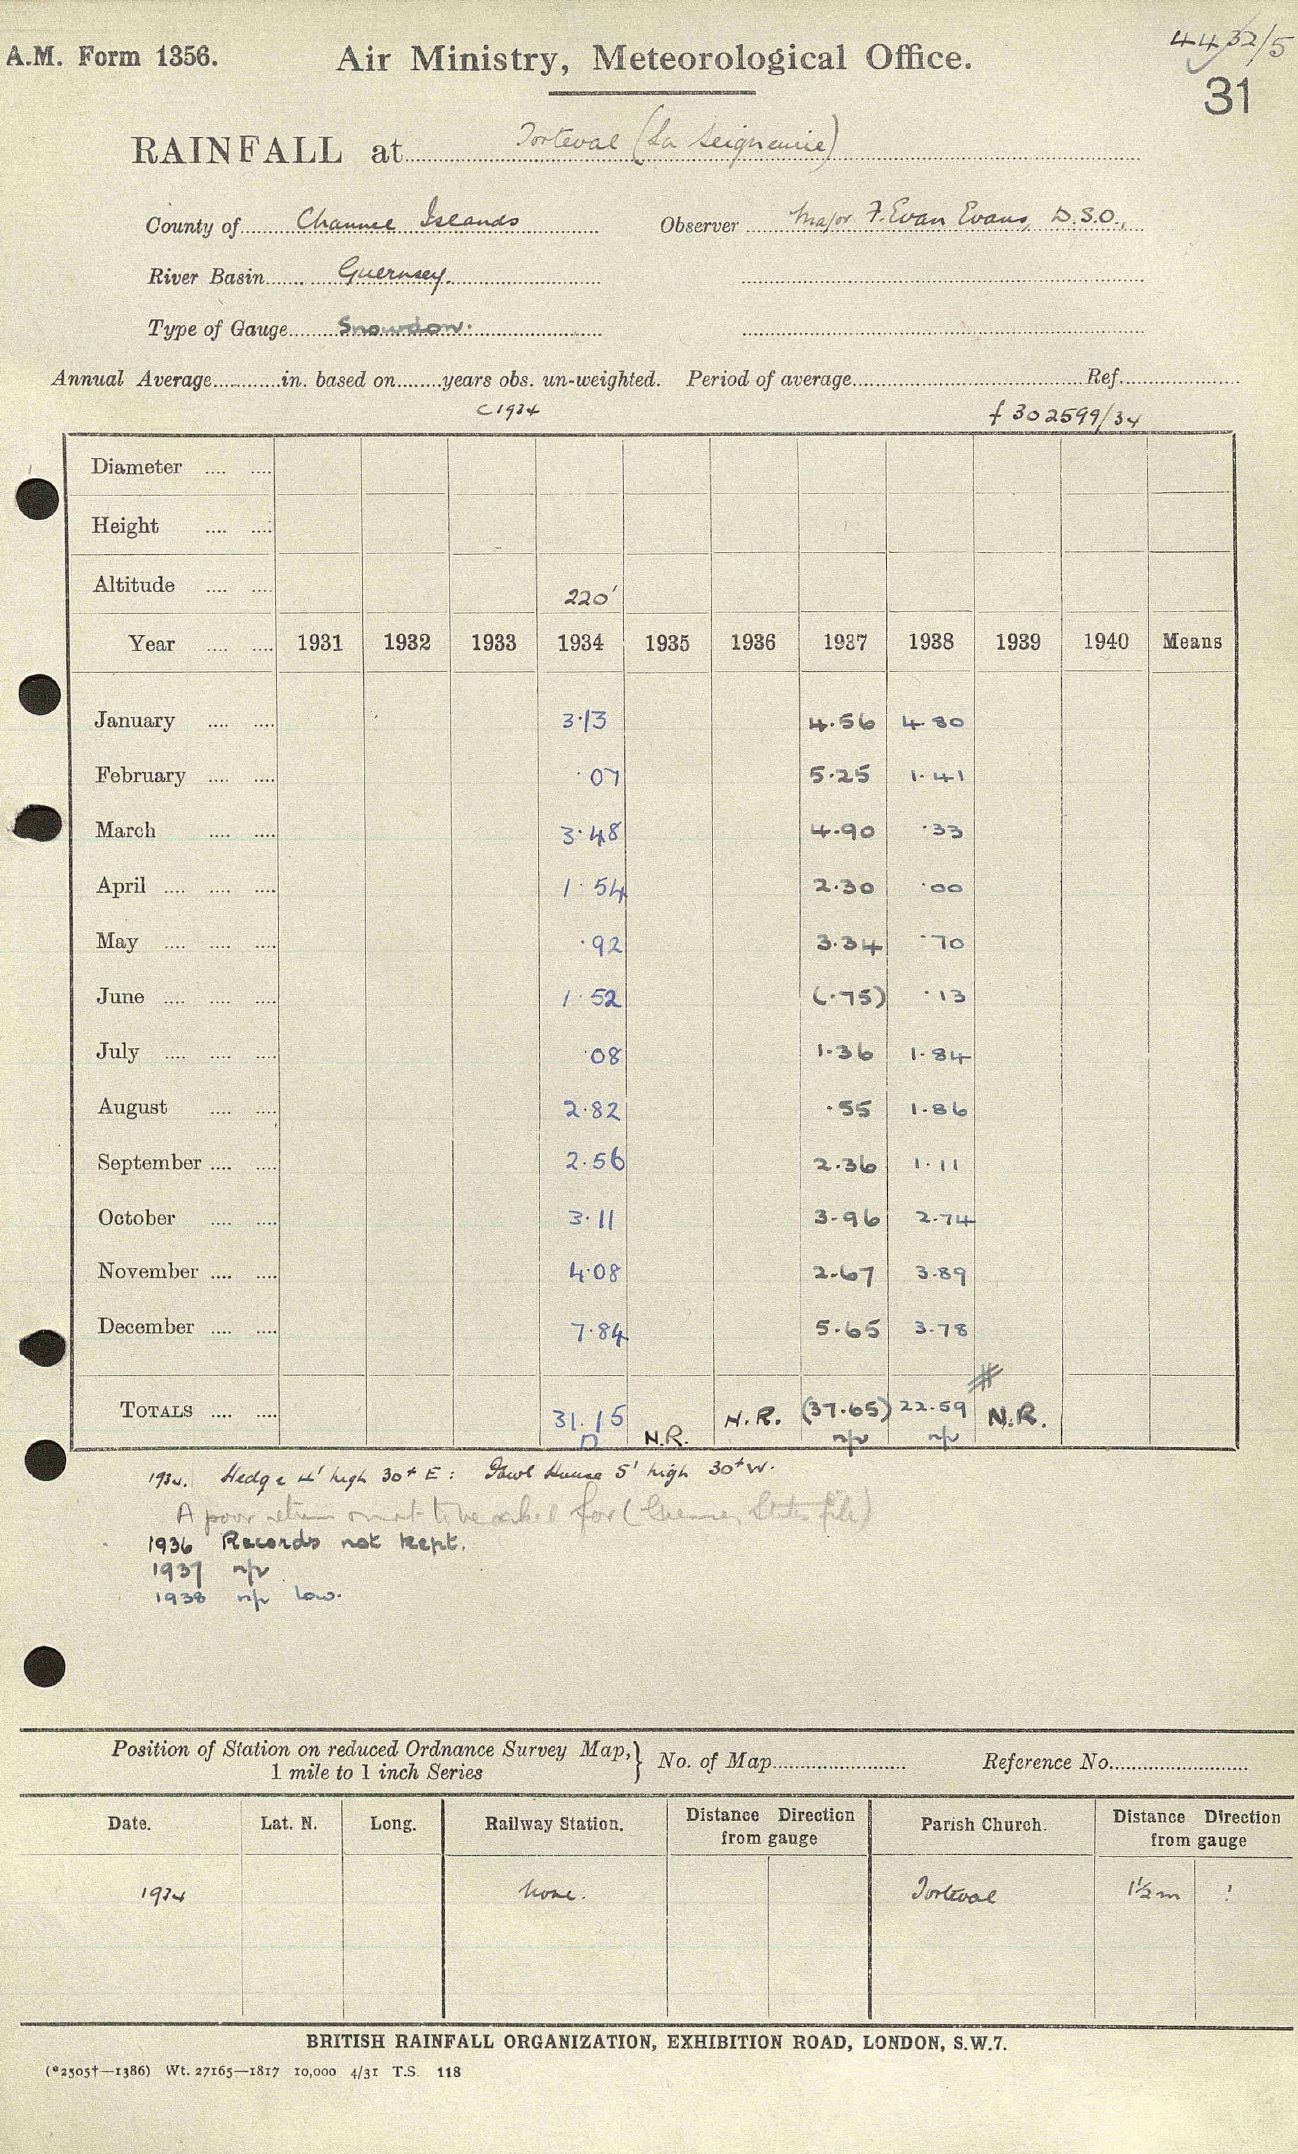 A.M. Form 1356.
Air Ministry, Meteorological Office.
4432/5
31
RAINFALL at Torteval (La Seigneurie)
County of Channel Islands Observer Major F. Evan Evans, D.S.O.,
River Basin Guernsey.
Type of Gauge Snowdon.
Annual Average............in. based on........years obs. un-weighted. Period of average..............................Ref.....................
C1934 f 302599/34
Diameter .... ....
Height .... ....
Altitude .... .... 220'
Year .... .... 1931 1932 1933 1934 1935 1936 1937 1938 1939 1940 Means
January .... .... 3.13 4.56 4.80
February .... .... .07 5.25 1.41
March .... .... 3.48 4.90 .33
April .... .... .... 1.54 2.30 .00
May .... .... .... .92 3.34 .70
June .... .... .... 1.52 (.75) .13
July .... .... .... .08 1.36 1.84
August .... .... 2.82 .55 1.86
September .... .... 2.56 2.36 1.11
October .... .... 3.11 3.96 2.74
November .... .... 4.08 2.67 3.89
December .... .... 7.84 5.65 3.78
#
TOTALS .... .... 31.15 N.R. N.R. (37.65) 22.59 N.R.
n/p n/p
1934. Hedge 4' high 30+ E: Fowl House 5' high 30+ W.
A poor return not to be asked for ( States file)
1936 Records not kept.
1937 n/p
1938 n/p low.
Position of Station on reduced Ordnance Survey Map, 1 mile to 1 inch Series } No. of Map........................ Reference No.........................
Date. Lat. N. Long. Railway Station. Distance Direction from gauge Parish Church. Distance Direction from gauge
1934 None. Torteval 1½m ?
BRITISH RAINFALL ORGANIZATION, EXHIBITION ROAD, LONDON, S.W.7.
(*2505†—1386) Wt. 27165—1817 10,000 4/31 T.S. 118